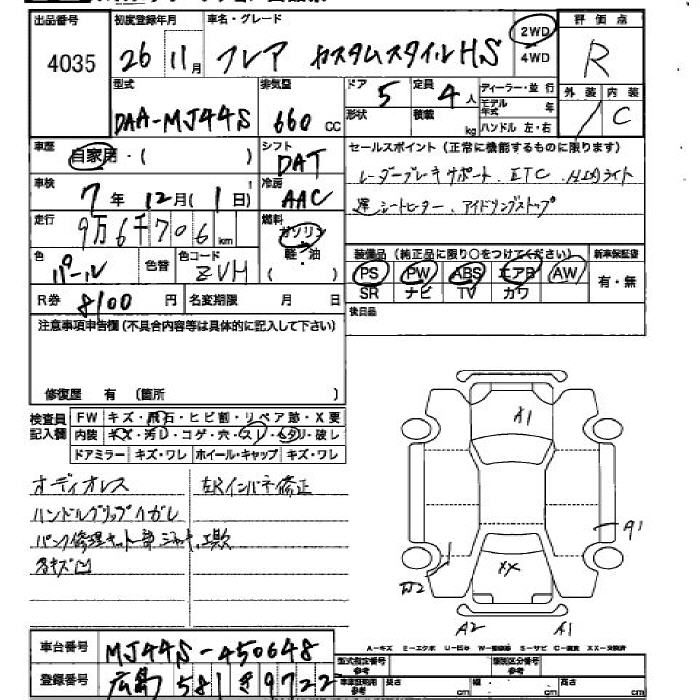 出品番号 初度登録年月 車名・グレード 評価点
4035 26 11月 フレア カスタムスタイルHS 2WD 4WD R
型式 排気量 ドア 定員 ディーラー・並行 外装 内装
DAA-MJ44S 660 cc 5 4人 モデル年式 年 / C
形状 積載 kg ハンドル 左・右
車歴 自家用・( ) シフト DAT セールスポイント(正常に機能するものに限ります)
車検 7年 12月(1日) 冷房 AAC レーダーブレーキサポート、ETC、HIDライト
走行 9万6千706km 燃料 ガソリン 軽・油 ( ) 運シートヒーター、アイドリングストップ
色 パール 色替 色コード ZVH 装備品(純正品に限り○をつけてください) 新車保証書
PS PW ABS エアB AW 有・無
R券 8100円 名変期限 月 日 SR ナビ TV カワ
注意事項申告欄(不具合内容等は具体的に記入して下さい) 後日品
修復歴 有 (箇所 )
検査員記入欄 FW キズ・飛石・ヒビ割・リペア跡・X要
内装 キズ・汚レ・コゲ・穴・スレ・ヘタリ・破レ
ドアミラー キズ・ワレ ホイール・キャップ キズ・ワレ
オーディオレス 左Rインパネ修正
ハンドルグリップハガレ
パンク修理キット
各キズ凹
A1
A1
XX
A2 A1
A-キズ E-エクボ U-凹み
車台番号 MJ44S-450648 型式指定番号 参考 類別区分番号 参考
登録番号 広島 581 き 9722 車庫証明用 参考 長さ cm 幅 cm 高さ cm